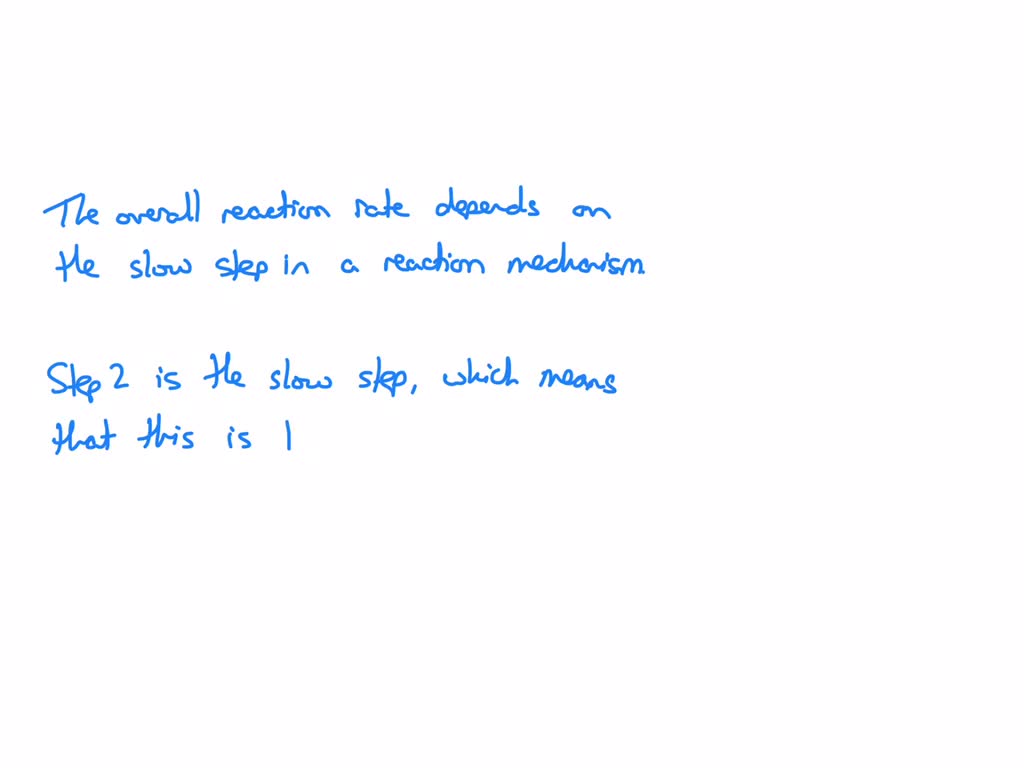 The overall reaction rate depends on
the slow step in a reaction mechanism.
Step 2 is the slow step, which means
that this is